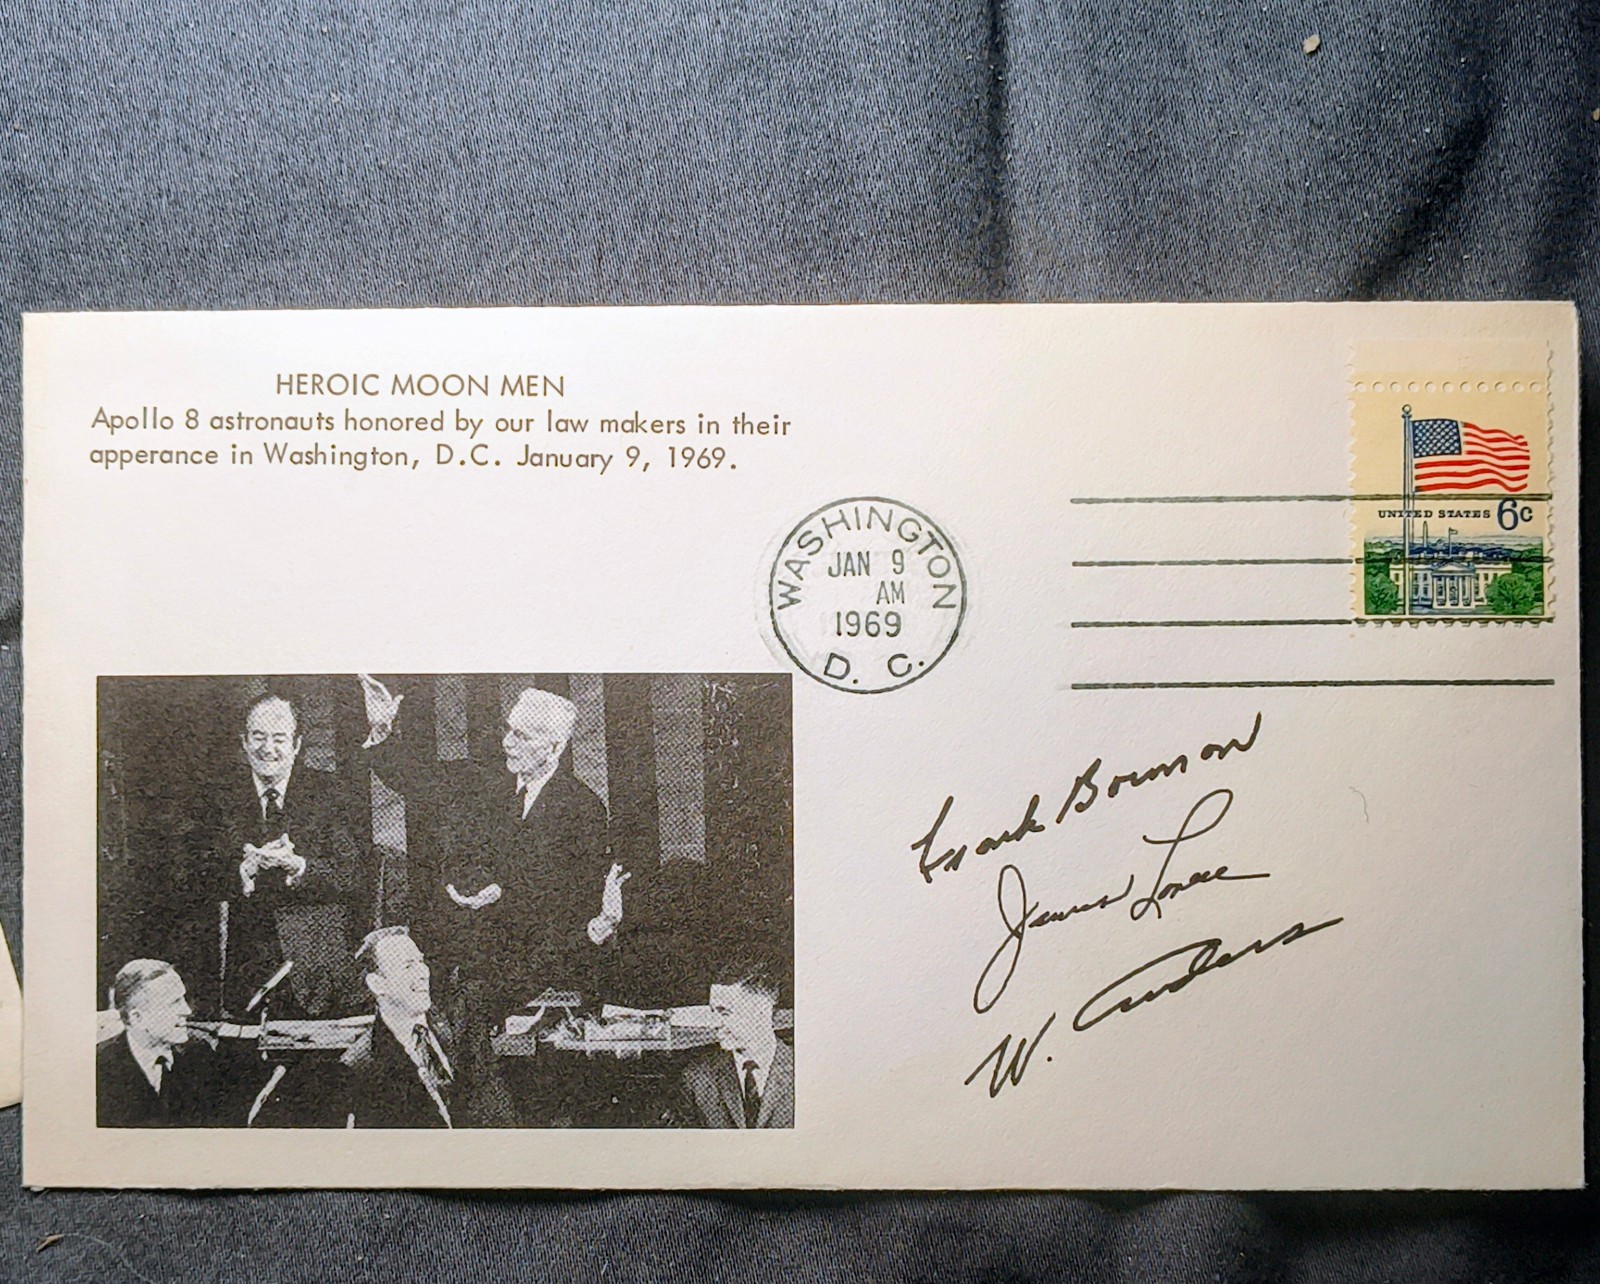 HEROIC MOON MEN
Apollo 8 astronauts honored by our law makers in their
apperance in Washington, D.C. January 9, 1969.
UNITED STATES 6c
WASHINGTON
JAN 9
AM
1969
D. C.
Frank Borman
James Lovell
W. Anders